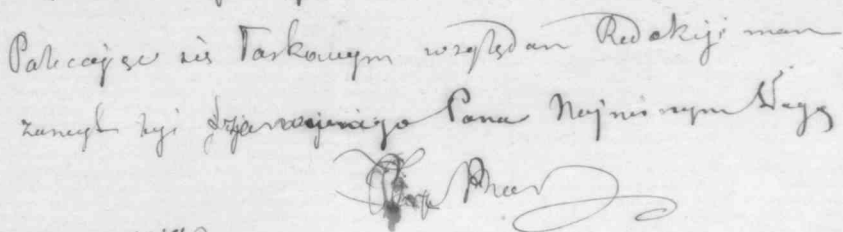 Polecając się łaskawym względom Redakcji mam
zaszczyt być Pana Najniższym Sługą